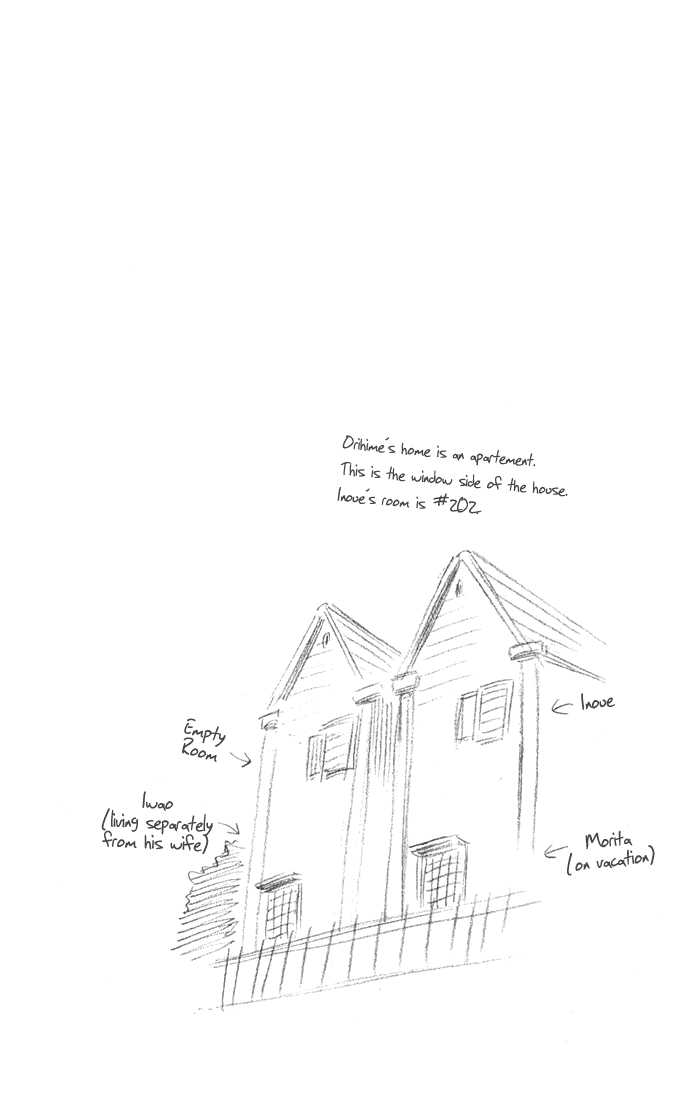 Orihime's home is an apartement.
This is the window side of the house.
Inoue's room is #202.
Inoue
Empty
Room
Iwao
(living separately
from his wife)
Morita
(on vacation)